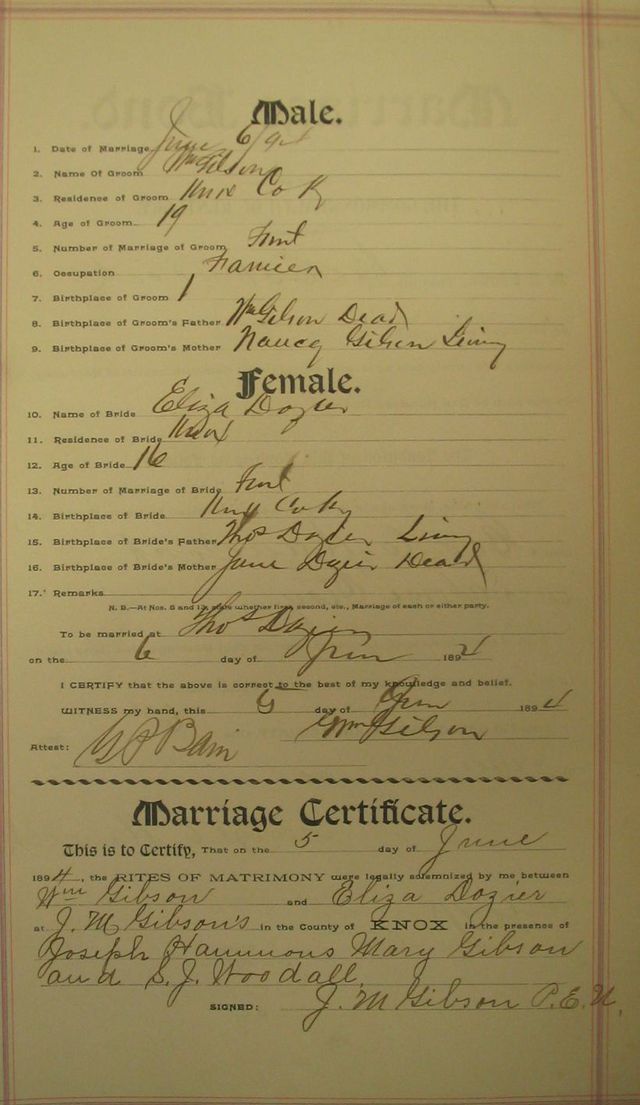 Male.
1. Date of Marriage June 6/94
2. Name Of Groom Wm Gilson
3. Residence of Groom Knox Co Ky
4. Age of Groom 19
5. Number of Marriage of Groom First
6. Occupation Farmer
7. Birthplace of Groom
8. Birthplace of Groom's Father Wm Gilson Dead
9. Birthplace of Groom's Mother Nancy Gilson Living
Female.
10. Name of Bride Eliza Dozier
11. Residence of Bride Knox
12. Age of Bride 16
13. Number of Marriage of Bride First
14. Birthplace of Bride Knox Co Ky
15. Birthplace of Bride's Father Thos Dozier Living
16. Birthplace of Bride's Mother Jane Dozier Dead
17. Remarks
N. B.—At Nos. 5 and 13, state whether first, second, etc., Marriage of each or either party.
To be married at Thos Dozier
on the 6 day of June 1894
I CERTIFY that the above is correct to the best of my knowledge and belief.
WITNESS my hand, this 6 day of June 1894
Wm Gilson
Attest: Bain
Marriage Certificate.
This is to Certify, That on the 5 day of June
1894, the RITES OF MATRIMONY were legally solemnized by me between
Wm Gibson and Eliza Dozier
at J. M Gibson's in the County of KNOX in the presence of
Joseph Hammons Mary Gibson
and S. J. Woodall.
SIGNED: J. M Gibson P. E. U.